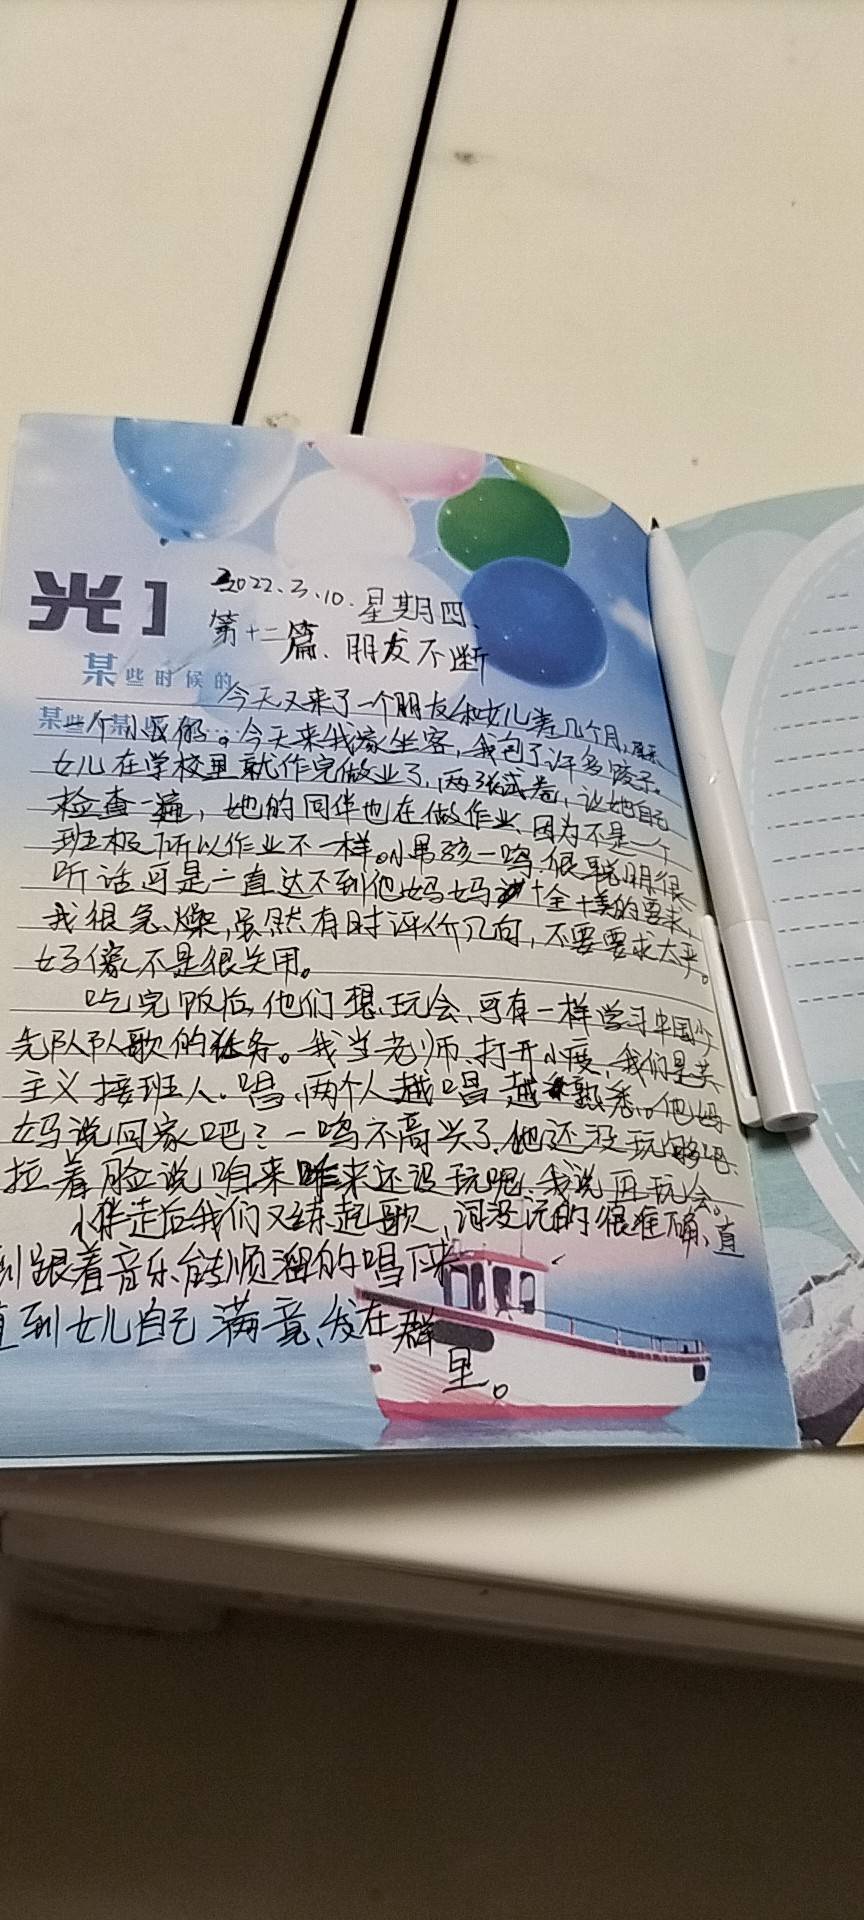 光]
2022.3.10.星期四、
第十二篇、朋友不断
某些时候的
某些个某
今天又来了一个朋友和女儿差几个月,
一个小区的。今天来我家坐客,我包了许多饺子。
女儿在学校里就作完做业了,两张试卷,让她自己
检查一遍,她的同伴也在做作业、因为不是一个
班极所以作业不一样。小男孩一鸣、很聪明很
听话可是一直达不到他妈妈十全十美的要求,
我很急燥,虽然有时评价几句,不要要求太平。
好像不是很关用。
吃完饭后,他们想玩会、可有一样学习中国少
先队队歌的任务。我当老师、打开小度,我们是共
主义接班人。唱、两个人越唱越熟悉。他妈
妈说回家吧?一鸣不高兴了,他还没玩够吧、
拉着脸说咱来还没玩呢,我说再玩会。
小伴走后我们又练起歌,词没记的很准确、直
到跟着音乐能顺溜的唱下来
直到女儿自己满意、发在群
里。